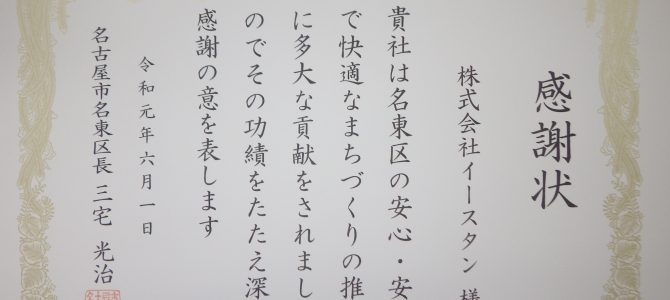 感謝状
株式会社イースタン 様
貴社は名東区の安心・安
で快適なまちづくりの推
に多大な貢献をされまし
のでその功績をたたえ深
感謝の意を表します
令和元年六月一日
名古屋市名東区長 三宅 光治